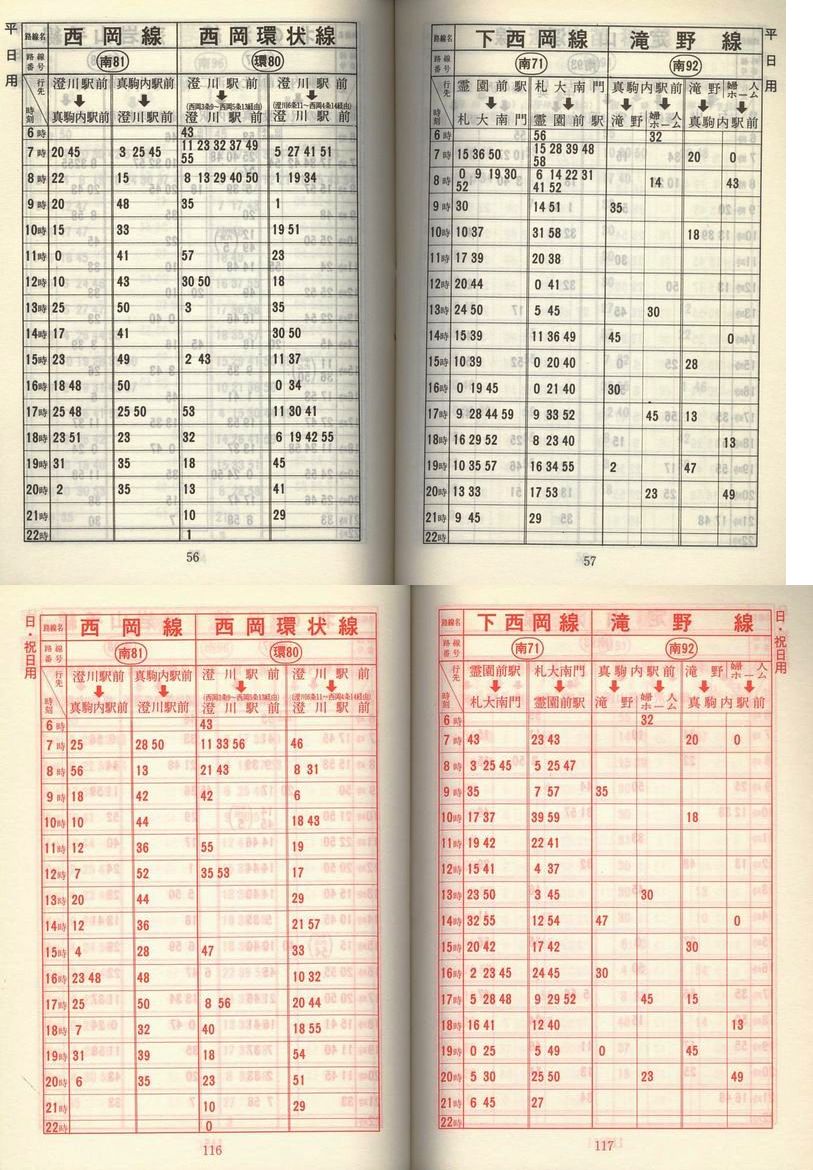 平日用
路線名 西岡線 西岡環状線
路線番号 南81 環80
行先 時刻 澄川駅前 真駒内駅前 澄川駅前 澄川駅前
(西岡3条9〜西岡5条13経由) (澄川6条11〜西岡4条14経由)
真駒内駅前 澄川駅前 澄川駅前 澄川駅前
6時 43
7時 20 45 3 25 45 11 23 32 37 49 55 5 27 41 51
8時 22 15 8 13 29 40 50 1 19 34
9時 20 48 35 1
10時 15 33 19 51
11時 0 41 57 23
12時 10 43 30 50 18
13時 25 50 3 35
14時 17 41 30 50
15時 23 49 2 43 11 37
16時 18 48 50 0 34
17時 25 48 25 50 53 11 30 41
18時 23 51 23 32 6 19 42 55
19時 31 35 18 45
20時 2 35 13 41
21時 10 29
22時 1
56
平日用
路線名 下西岡線 滝野線
路線番号 南71 南92
行先 時刻 霊園前駅 札大南門 真駒内駅前 滝野 婦人ホーム
札大南門 霊園前駅 滝野 婦人ホーム 真駒内駅前
6時 56 32
7時 15 36 50 15 28 39 48 58 20 0
8時 0 9 19 30 52 6 14 22 31 41 52 14 43
9時 30 14 51 35
10時 10 37 31 58 18
11時 17 39 20 38
12時 20 44 0 41
13時 24 50 5 45 30
14時 15 39 11 36 49 45 0
15時 10 39 0 20 40 28
16時 0 19 45 0 21 40 30
17時 9 28 44 59 9 33 52 45 13
18時 16 29 52 8 23 40 13
19時 10 35 57 16 34 55 2 47
20時 13 33 17 53 23 49
21時 9 45 29
22時
57
日・祝日用
路線名 西岡線 西岡環状線
路線番号 南81 環80
行先 時刻 澄川駅前 真駒内駅前 澄川駅前 澄川駅前
(西岡3条9〜西岡5条13経由) (澄川6条11〜西岡4条14経由)
真駒内駅前 澄川駅前 澄川駅前 澄川駅前
6時 43
7時 25 28 50 11 33 56 46
8時 56 13 21 43 8 31
9時 18 42 42 6
10時 10 44 18 43
11時 12 36 55 19
12時 7 52 35 53 17
13時 20 44 29
14時 12 36 21 57
15時 4 28 47 33
16時 23 48 48 10 32
17時 25 50 8 56 20 44
18時 7 32 40 18 55
19時 31 39 18 54
20時 6 35 23 51
21時 10 29
22時 0
116
日・祝日用
路線名 下西岡線 滝野線
路線番号 南71 南92
行先 時刻 霊園前駅 札大南門 真駒内駅前 滝野 婦人ホーム
札大南門 霊園前駅 滝野 婦人ホーム 真駒内駅前
6時 32
7時 43 23 43 20 0
8時 3 25 45 5 25 47
9時 35 7 57 35
10時 17 37 39 59 18
11時 19 42 22 41
12時 15 41 4 37
13時 23 50 3 45 30
14時 32 55 12 54 47 0
15時 20 42 17 42 30
16時 2 23 45 24 45 30
17時 5 28 48 9 29 52 45 15
18時 16 41 12 40 13
19時 0 25 5 49 0 45
20時 5 30 25 50 23 49
21時 6 45 27
22時
117